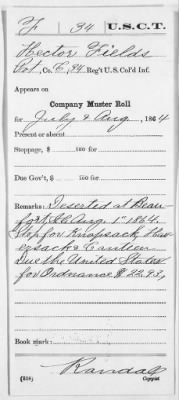 F 34 U.S.C.T.
Hector Fields
Pvt, Co. C, 34 Reg't U.S. Col'd Inf.
Appears on
Company Muster Roll
for July & Aug, 1864
Present or absent
Stoppage, $ 100 for
Due Gov't, $ 100 for
Remarks: Deserted at Beau-
fort S.C. Aug. 1" 1864.
Stop for Knapsack, Hav-
ersack & Canteen
Due the United States
for Ordnance $22.93,
Book mark:
Randall
(358) Copyist